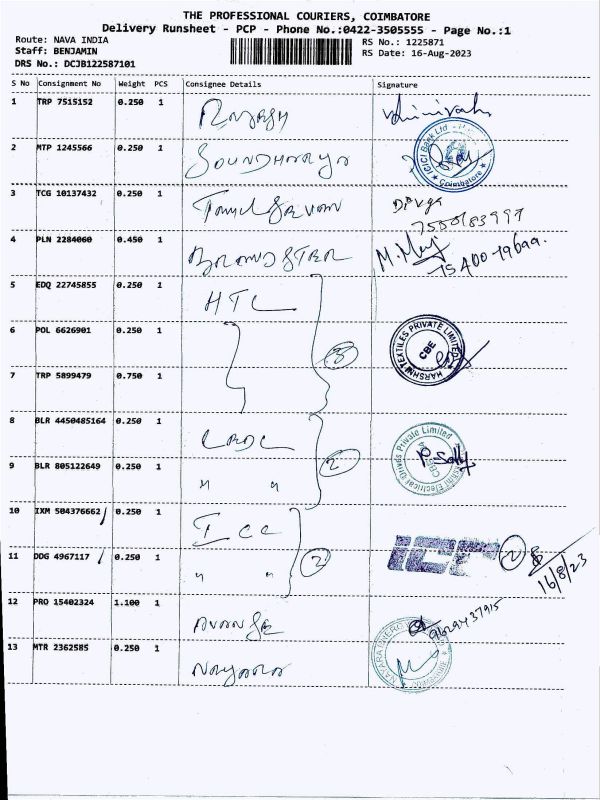 THE PROFESSIONAL COURIERS, COIMBATORE
Delivery Runsheet - PCP - Phone No.:0422-3505555 - Page No.:1
Route: NAVA INDIA
RS No.: 1225871
Staff: BENJAMIN
RS Date: 16-Aug-2023
DRS No.: DCJB122587101
S No Consignment No Weight PCS Consignee Details Signature
1 TRP 7515152 0.250 1 RAJESH
2 MTP 1245566 0.250 1 SOUNDHARYA
ICICI Bank Ltd
Coimbatore
3 TCG 10137432 0.250 1 TAMIL SELVAN
4 PLN 2284060 0.450 1
M.
5 EDQ 22745855 0.250 1 HTL
6 POL 6626901 0.250 1 3
HARSHNI TEXTILES PRIVATE LIMITED
CBE
7 TRP 5899479 0.750 1
8 BLR 4450485164 0.250 1
Electrical Drives Private Limited
9 BLR 805122649 0.250 1 " " 2
10 IXM 504376662 0.250 1 ICC
11 DDG 4967117 0.250 1 " " 2
2
16/8/23
12 PRO 15402324 1.100 1
9629437915
13 MTR 2362585 0.250 1 NAYARA
NAYARA ENERGY